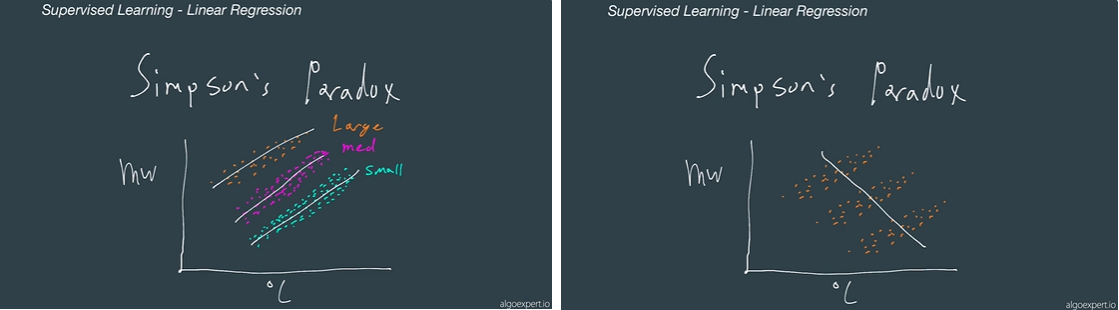 Supervised Learning - Linear Regression
Simpson's Paradox
Large
med
small
MW
°C
algoexpert.io
Supervised Learning - Linear Regression
Simpson's Paradox
MW
°C
algoexpert.io